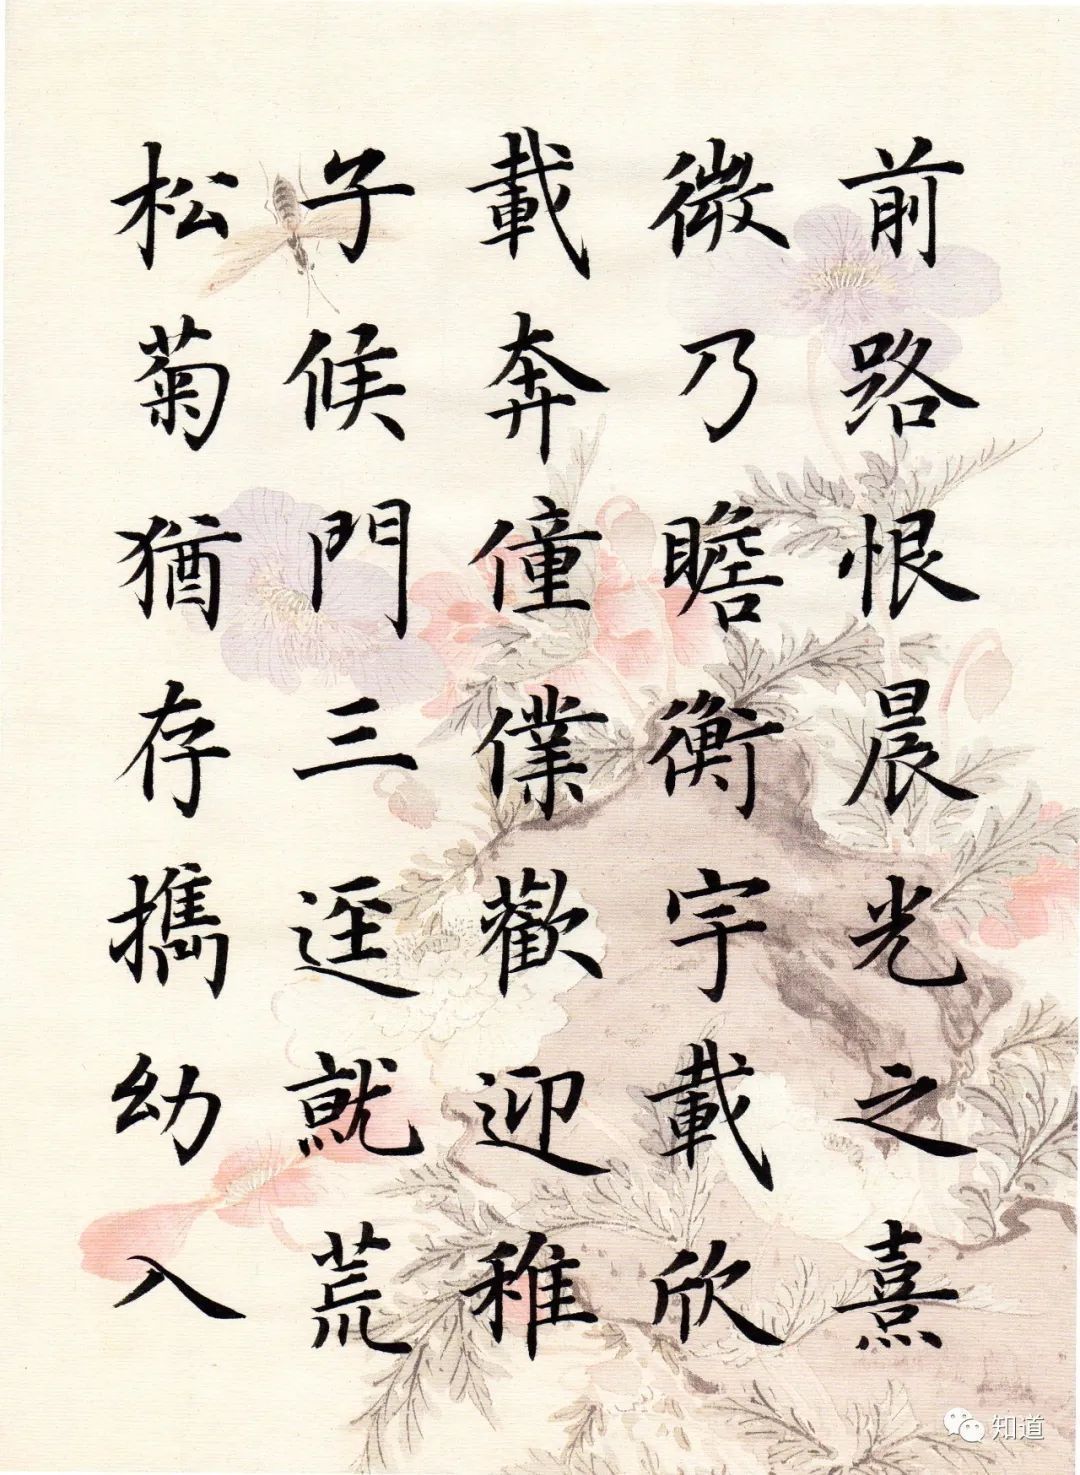 前路恨晨光之熹
微乃瞻衡宇載欣
載奔僮僕歡迎稚
子候門三逕就荒
松菊猶存攜幼入
知道